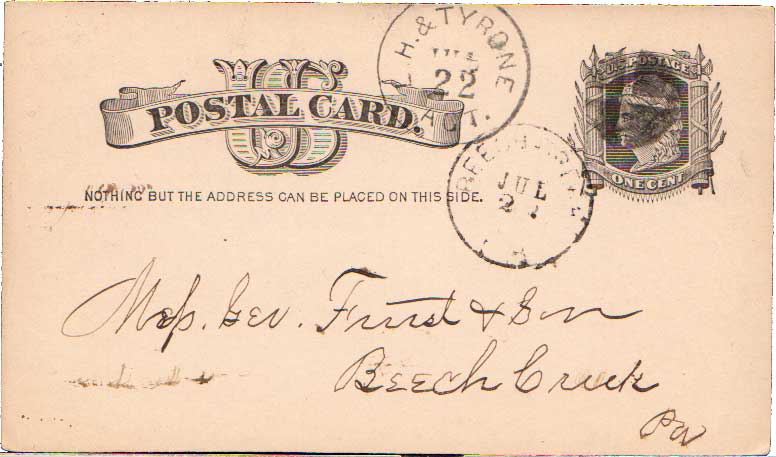 L. H. & TYRONE
JUL
22
AGT.
US
POSTAL CARD.
U.S. POSTAGE
ONE CENT
NOTHING BUT THE ADDRESS CAN BE PLACED ON THIS SIDE.
BEECH CREEK
JUL
PA
Mess. Geo. Furst & Son
Beech Creek
Pa